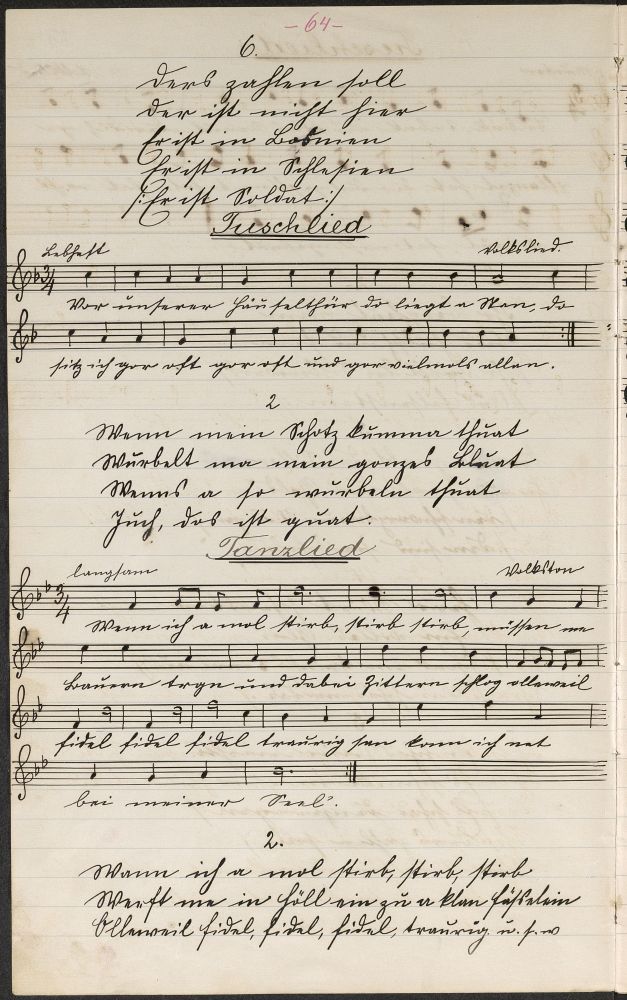 - 64 -
6.
Ders zahlen soll
Der ist nicht hier
Er ist in Bosnien
Er ist in Schlesien
/: Er ist Soldat :/
Tuschlied
Lebhaft Volkslied.
Vor unserer Häuselthür do liegt a Stan, do
sitz ich gar oft gar oft und gar vielmals allan.
2
Wenn mein Schotz kumma thuat
Wurbelt ma mein gonzes Bluat
Wenns a so wurbeln thuat
Juch, das ist guat.
Tanzlied
langsam Volkston
Wenn ich a mol stirb, stirb stirb, müssen me
Bauern trgn und dabei Zittern schlog olleweil
fidel fidel fidel traurig san kann ich net
bei meiner Seel'.
2.
Wann ich a mol stirb, stirb, stirb
Werft me in Höll ein zu a klan Fässelein
Olleweil fidel, fidel, fidel, traurig u. s. w